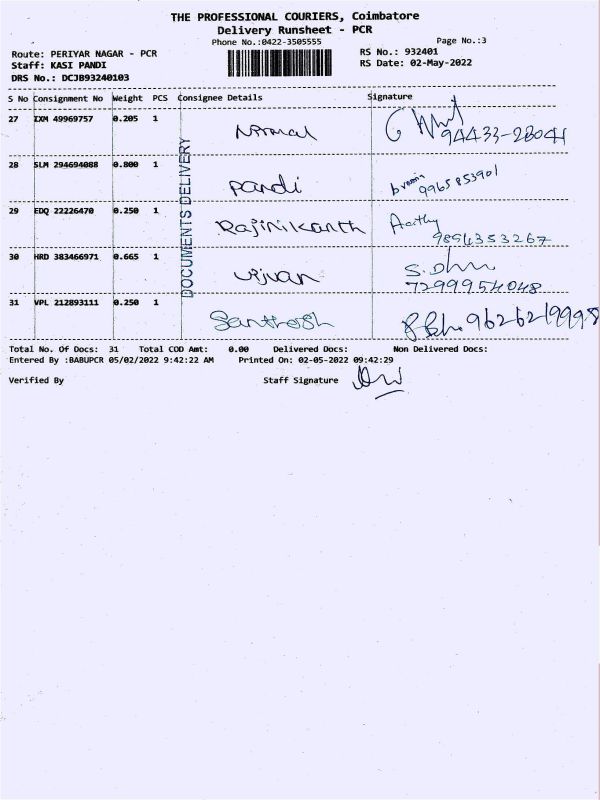 THE PROFESSIONAL COURIERS, Coimbatore
Delivery Runsheet - PCR
Phone No.:0422-3505555
Page No.:3
Route: PERIYAR NAGAR - PCR
RS No.: 932401
Staff: KASI PANDI
RS Date: 02-May-2022
DRS No.: DCJB93240103
S No Consignment No Weight PCS Consignee Details Signature
27 IXM 49969757 0.205 1 Nirmal 94433-28041
28 SLM 294694088 0.800 1 Pandi 9965853901
29 EDQ 22226470 0.250 1 Rajinikanth Aarthy
9894353267
30 HRD 383466971 0.665 1 S.Dhu
7299954048
31 VPL 212893111 0.250 1 Santhosh 9626219998
DOCUMENTS DELIVERY
Total No. Of Docs: 31 Total COD Amt: 0.00 Delivered Docs: Non Delivered Docs:
Entered By :BABUPCR 05/02/2022 9:42:22 AM Printed On: 02-05-2022 09:42:29
Verified By Staff Signature